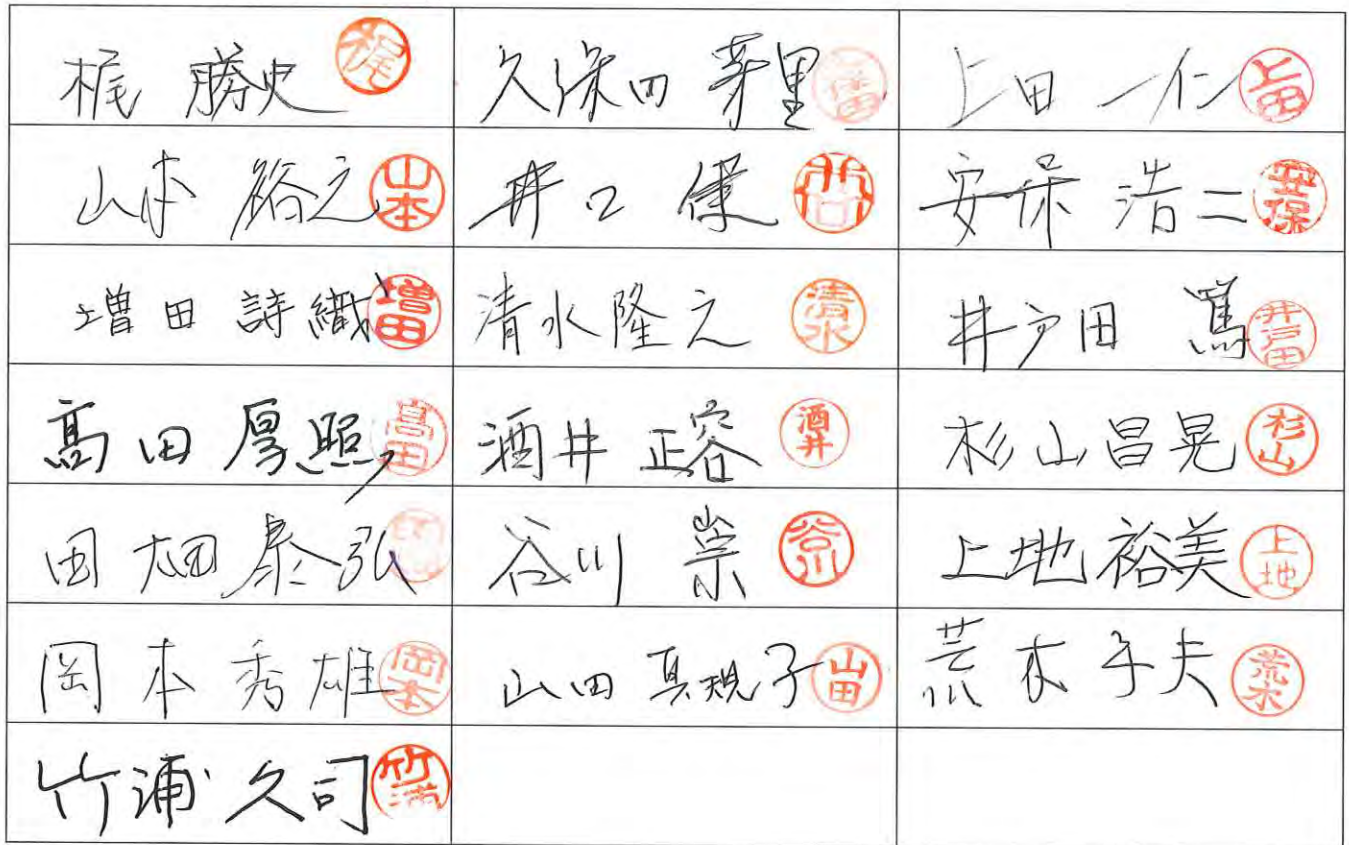 梶 勝史 梶 久保田 芽里 上田 一仁 上田
山本 裕之 山本 井口 保 井口 安保 浩二 安保
増田 詩織 増田 清水隆之 清水 井戸田 篤 井戸田
髙田 厚照 髙田 酒井 正容 酒井 杉山昌晃 杉山
田畑 泰弘 谷川 崇 谷川 上地 裕美 上地
岡本 秀雄 岡本 山田 真規子 山田 荒木 夫 荒木
竹浦 久司 竹浦